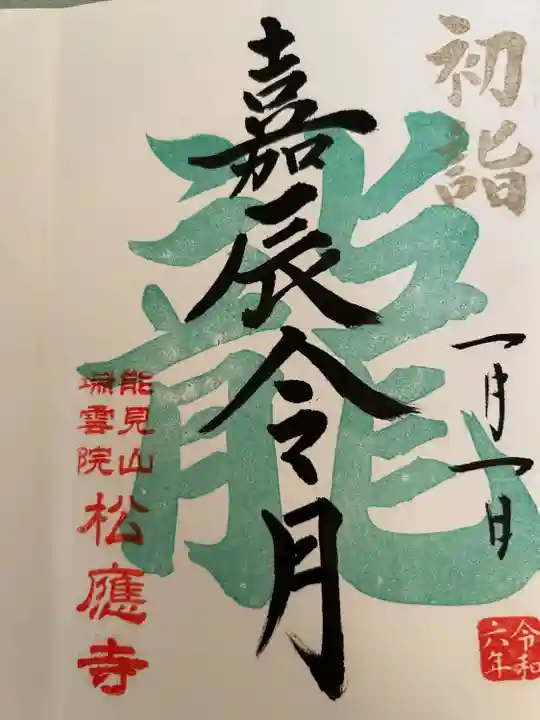 初詣
一月一日
令和
六年
龍
嘉辰令月
能見山
瑞雲院
松應寺